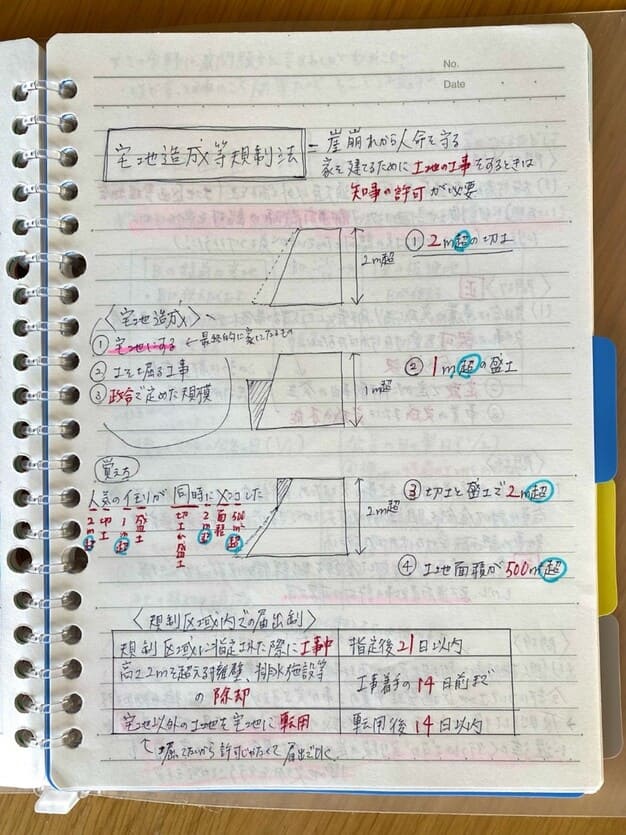 No.
Date
宅地造成等規制法 = 崖崩れから人命を守る
家を建てるために土地の工事をするときは
知事の許可が必要
2m超
① 2m超の切土
〈宅地造成〉
① 宅地にする ←最終的に家にたるもの
② 土を掘る工事
③ 政令で定めた規模
1m超
② 1m超の盛土
覚え方
人気のイモリが 同時に メココした
2m超 切土 1m超 盛土 切土か盛土 2m超 面積 500㎡超
2m超
③ 切土と盛土で2m超
④ 土地面積が500㎡超
〈規制区域内での届出制〉
規制区域に指定された際に工事中 指定後21日以内
高さ2mを超える擁壁、排水施設等
の除却 工事着手の14日前まで
宅地以外の土地を宅地に転用 転用後14日以内
↑掘ってないから許可じゃなくて届出でOK